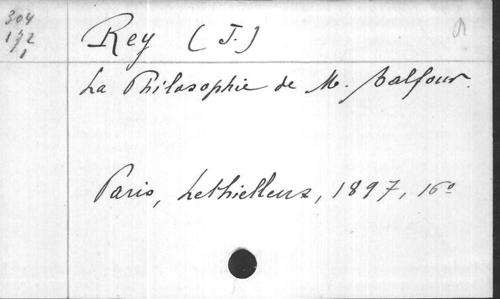 304
172
1
Rey (J.)
La Philosophie de M. Balfour.
Paris, Lethielleux, 1897, 16º